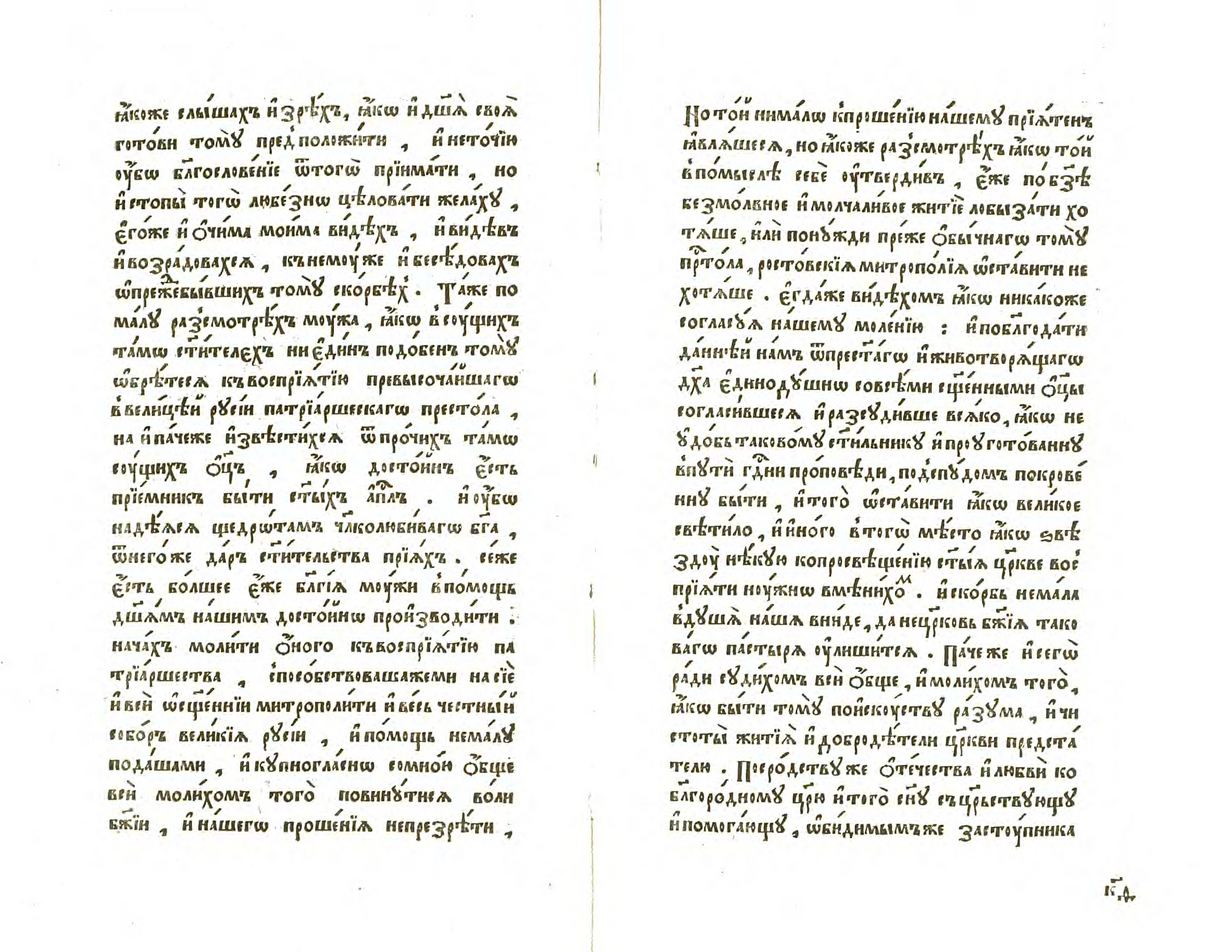 ꙗ҆́коже слы́шахъ и҆ зрѣ́хъ, ꙗ҆́кѡ и҆ дш҃а̀ своѧ̀
гото́ви томꙋ̀ пред̾положи́ти , и҆ неточі́ю
оу҆́бѡ бл҃гослове́нїе ѿ тогѡ̀ прїима́ти , но
и҆ стопы̀ тогѡ̀ любе́знѡ цѣлова́ти жела́хꙋ ,
є҆го́же и҆ ѻ҆чи́ма мои́ма ви́дѣхъ , и҆ ви́дѣвъ
и҆ возра́довахсѧ , къ немоу́же и҆ бесѣ́довахъ
ѡ҆ пре́жебы́вшихъ томꙋ̀ ско́рбѣⷯ . Та́же по
ма́лꙋ раз̾смотрѣ́хъ моу́жа , ꙗ҆́кѡ в̾ соу́щихъ
та́мѡ ст҃и́телєхъ ни є҆ди́нъ подо́бенъ томꙋ̀
ѡ҆брѣ́тесѧ къ воспрїѧ́тїю превысоча́йшагѡ
в̾ вели́цѣй рꙋсі́и патрїа́ршескагѡ престо́ла ,
на и҆ па́чеже и҆звѣсти́хсѧ ѿ про́чихъ та́мѡ
соу́щихъ ѻ҆ц҃ъ , ꙗ҆́кѡ досто́инъ є҆́сть
прїе́мникъ бы́ти ст҃ы́хъ а҆пⷭ҇лъ . и҆ оу҆́бѡ
надѣ́ѧсѧ щедрѡ́тамъ чл҃колюби́вагѡ бг҃а ,
ѿ него́же да́ръ ст҃и́тельства прїѧ́хъ . се́же
є҆́сть бо́лшее є҆́же бл҃гі́ѧ моу́жи в̾ по́мощь
дш҃а́мъ на́шимъ досто́йнѡ произ̾води́ти :
нача́хъ моли́ти ѻ҆́ного къ воспрїѧ́тїю па
трїа́ршества , спосо́бствовашажеми на сїѐ
и҆ всѝ ѡ҆сщ҃е́ннїи митрополи́ти и҆ ве́сь че́стный
собо́ръ вели́кїѧ рꙋсі́и , и҆ по́мощь нема́лꙋ
пода́шами , и҆ кꙋ́пногла́снѡ со мно́ю ѻ҆́бще
всѝ моли́хомъ того̀ повинꙋ́тисѧ во́ли
бж҃їи , и҆ на́шегѡ проше́нїѧ непрезрѣ́ти ,
Но то́й нима́лѡ к̾ проше́нїю на́шемꙋ прїѧ́тенъ
ꙗ҆влѧ́шесѧ, но ꙗ҆́коже раз̾смотрѣ́хъ ꙗ҆́кѡ то́й
в̾ по́мыслѣ себѐ оу҆тверди́въ , є҆́же по бз҃ѣ
безмо́лвное и҆ молчали́вое житїѐ лобыза́ти хо
тѧ́ше, и҆лѝ понꙋ́жди пре́же ѻ҆бы́чнагѡ томꙋ̀
прⷭ҇то́ла, росто́вскїѧ митропо́лїѧ ѡ҆ста́вити не
хотѧ́ше . є҆гда́же ви́дѣхомъ ꙗ҆́кѡ ника́коже
согласꙋ́ѧ на́шемꙋ моле́нїю : и҆ по бл҃года́ти
да́ннѣй на́мъ ѿ прест҃а́гѡ и҆ животворѧ́щагѡ
дх҃а є҆динодꙋ́шнѡ со всѣ́ми сщ҃е́нными ѻ҆ц҃ы
согласи́вшесѧ и҆ разсꙋди́вше всѧ́ко, ꙗ҆́кѡ не
ꙋ҆до́бь таково́мꙋ свѣти́льникꙋ и҆ проꙋгото́ванꙋ
в̾ пꙋтѝ гдⷭ҇ни про́повѣди, под̾спꙋ́домъ покрове́
ннꙋ бы́ти , и҆ того̀ ѡ҆ста́вити ꙗ҆́кѡ вели́кое
свѣти́ло, и҆ и҆но́го в̾ тогѡ̀ мѣ́сто ꙗ҆́кѡ ѕвѣ
здоу̀ нѣ́кую ко просвѣще́нїю ст҃ы́ѧ цр҃кве вос̾
прїѧ́ти ноу́жнѡ вмѣни́хоⷨ . и҆ ско́рбь нема́ла
в̾ дꙋ́шѧ на́шѧ вни́де, да не цр҃ковь бж҃їѧ тако
ва́гѡ па́стырѧ оу҆лиши́тсѧ . Па́чеже и҆ сегѡ̀
ра́ди сꙋди́хомъ всѝ ѻ҆́бще, и҆ моли́хомъ того̀,
ꙗ҆́кѡ бы́ти томꙋ̀ по и҆скоу́ствꙋ ра́зꙋма , и҆ чи
стоты̀ житїѧ̀ и҆ добродѣ́тели цр҃кви предста́
телю . По сро́дствꙋже ѻ҆те́чества и҆ любвѝ ко
бл҃горо́дномꙋ цр҃ю и҆ того̀ сн҃ꙋ съцр҃ьствꙋ́ющꙋ
и҆ помога́ющꙋ , ѡ҆би́димымъже застоу́пника
к҃д